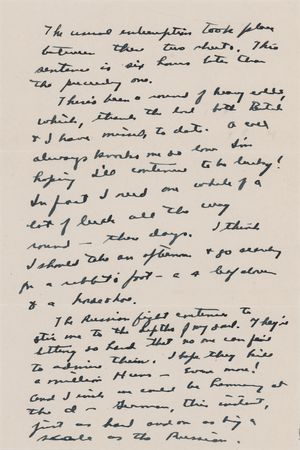 The usual interruption took place
between these two sheets. This
sentence is six hours later than
the preceding one.
There's been a round of heavy colds,
which, thank the Lord, both
& I have missed, to date. A cold
always knocks me so low I'm
hoping I'll continue to be lucky!
In fact I need one whale of a
lot of luck all the way
round — these days. I think
I should take an afternoon & go searching
for a rabbit's foot — a 4 leaf clover
& a horseshoe.
The Russian fight continues to
stir me to the depths of my soul. They're
fighting so hard that no one can fail
to admire them. I hope they kill
a million Huns — even more!
and I wish we could be hammering at
the d — German, this instant,
just as hard and on as big a
scale as the Russian.